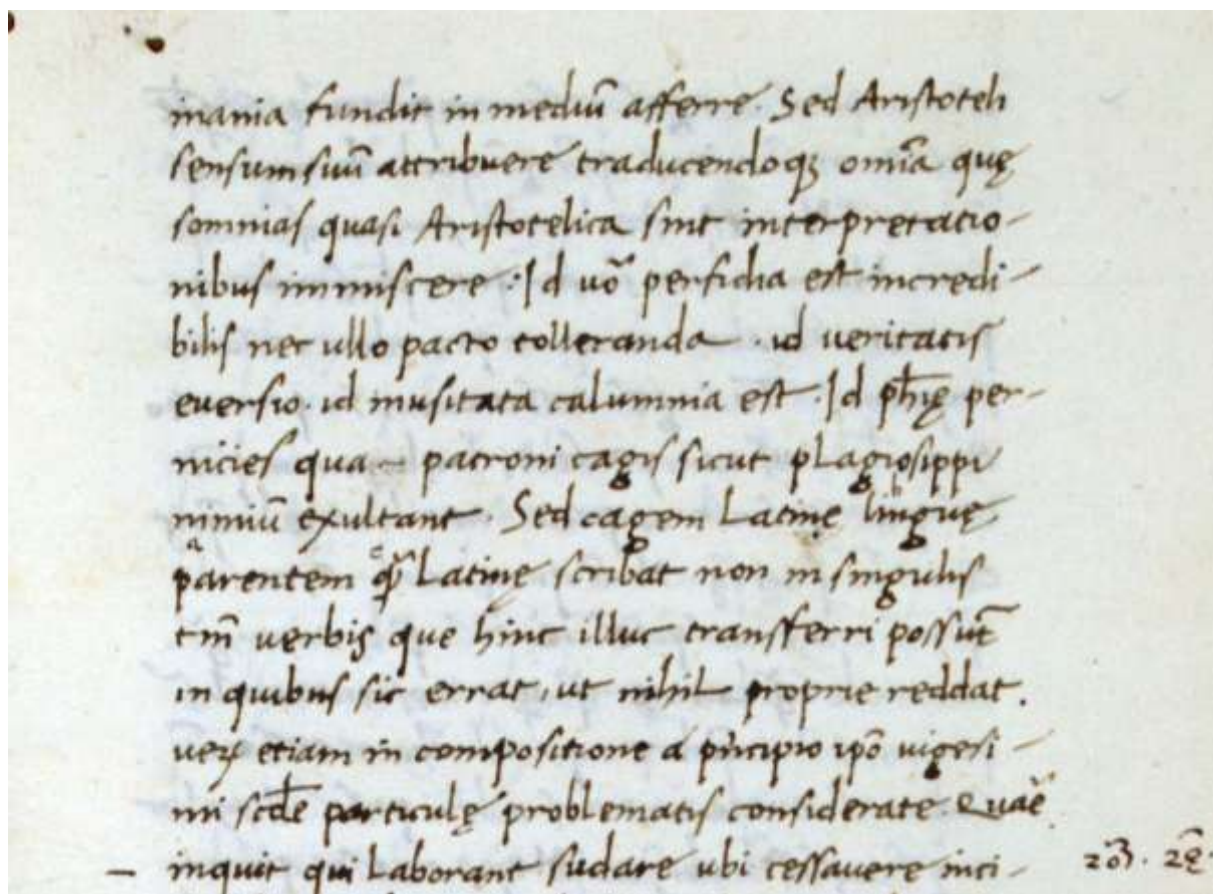 inania fundit in mediū afferre. Sed Aristoteli
sensum suū attribuere traducendoqꝫ omīa quę
somnias quasi Aristotelica sint interpretatio-
nibus immiscere: Id uō perfidia est incredi-
bilis nec ullo pacto tolleranda. id veritatis
eversio. id inusitata calumnia est. Id phię per-
nicies qua patroni cagis sicut plagiosippi
nimiū exultant. Sed cagem Latinę linguę
parentem Latinę scribat non in singulis
tm̄ verbis que hinc illuc transferri possūt
in quibus sic errat, ut nihil proprie reddat.
veꝝ etiam in compositione a pͥncipio ipō vigesi-
mi scdę particulę problematis considerate. Quāe
inquit qui Laborant sudare ubi cessavere inci-